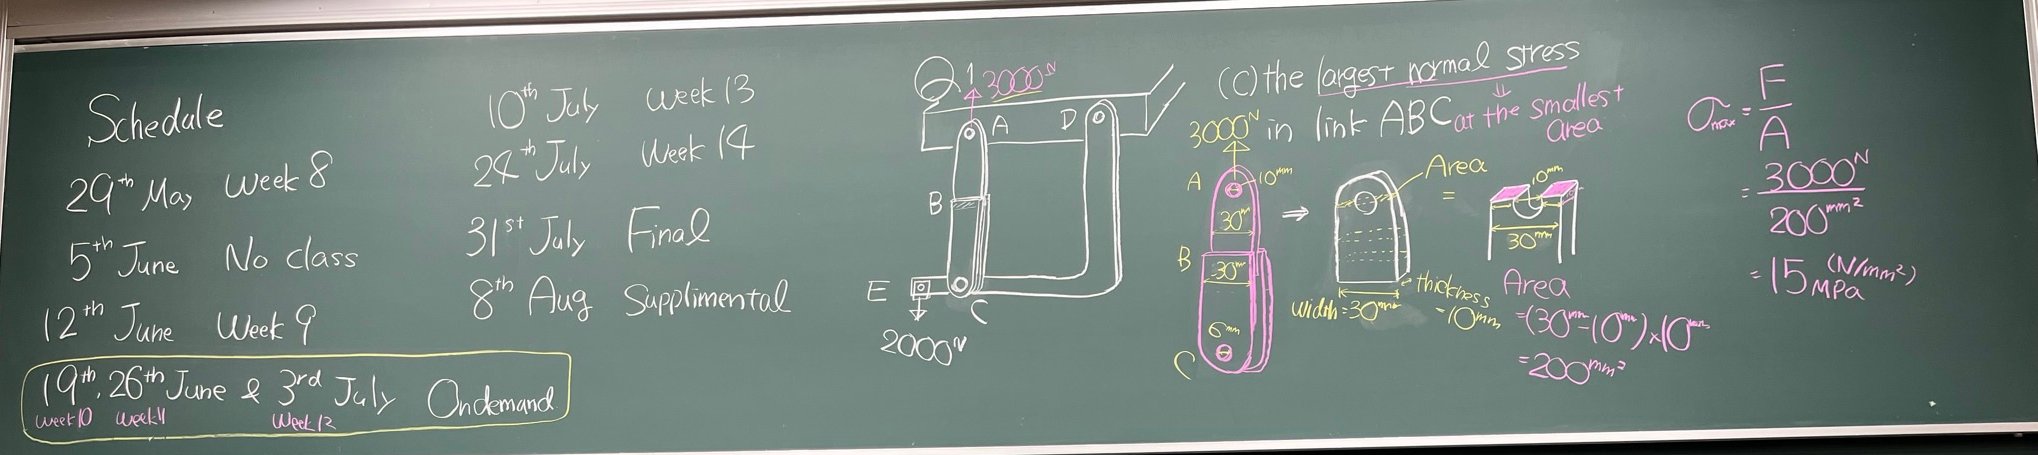 Schedule
29th May Week 8
5th June No class
12th June Week 9
19th, 26th June & 3rd July Ondemand
Week 10 Week 11 Week 12
10th July Week 13
24th July Week 14
31st July Final
8th Aug Supplimental
Q1
3000N
A
D
B
E
C
2000N
(C) the largest normal stress
in link ABC at the smallest
area
3000N
A
10mm
30mm
B
30mm
6mm
C
⇒
Area
=
width=30mm
thickness
=10mm
10mm
30mm
Area
=(30mm-10mm)×10mm
=200mm²
σmax = F/A
= 3000N/200mm²
= 15 (N/mm²)
MPa